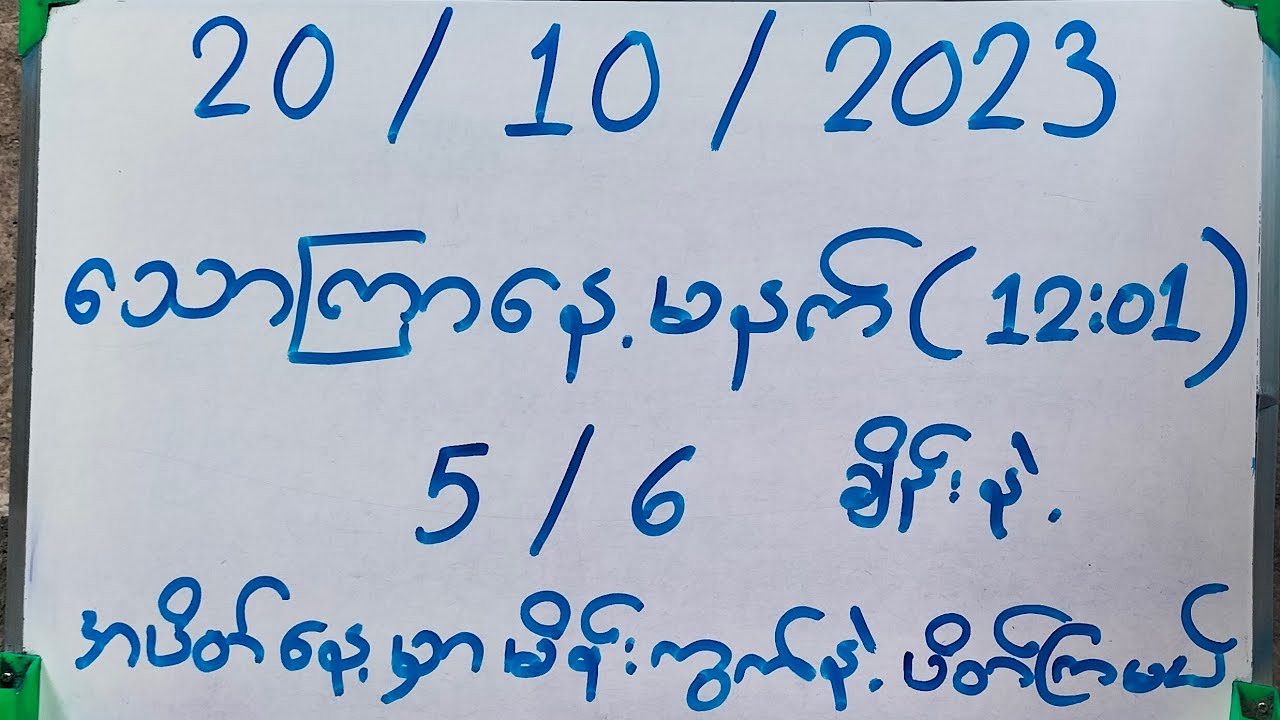 20 / 10 / 2023
သောကြာနေ့မနက် (12:01)
5 / 6 ချိန်းနဲ့
အပိတ်နေ့မှာ မိန်းကွက်နဲ့ ပိတ်ကြမယ်